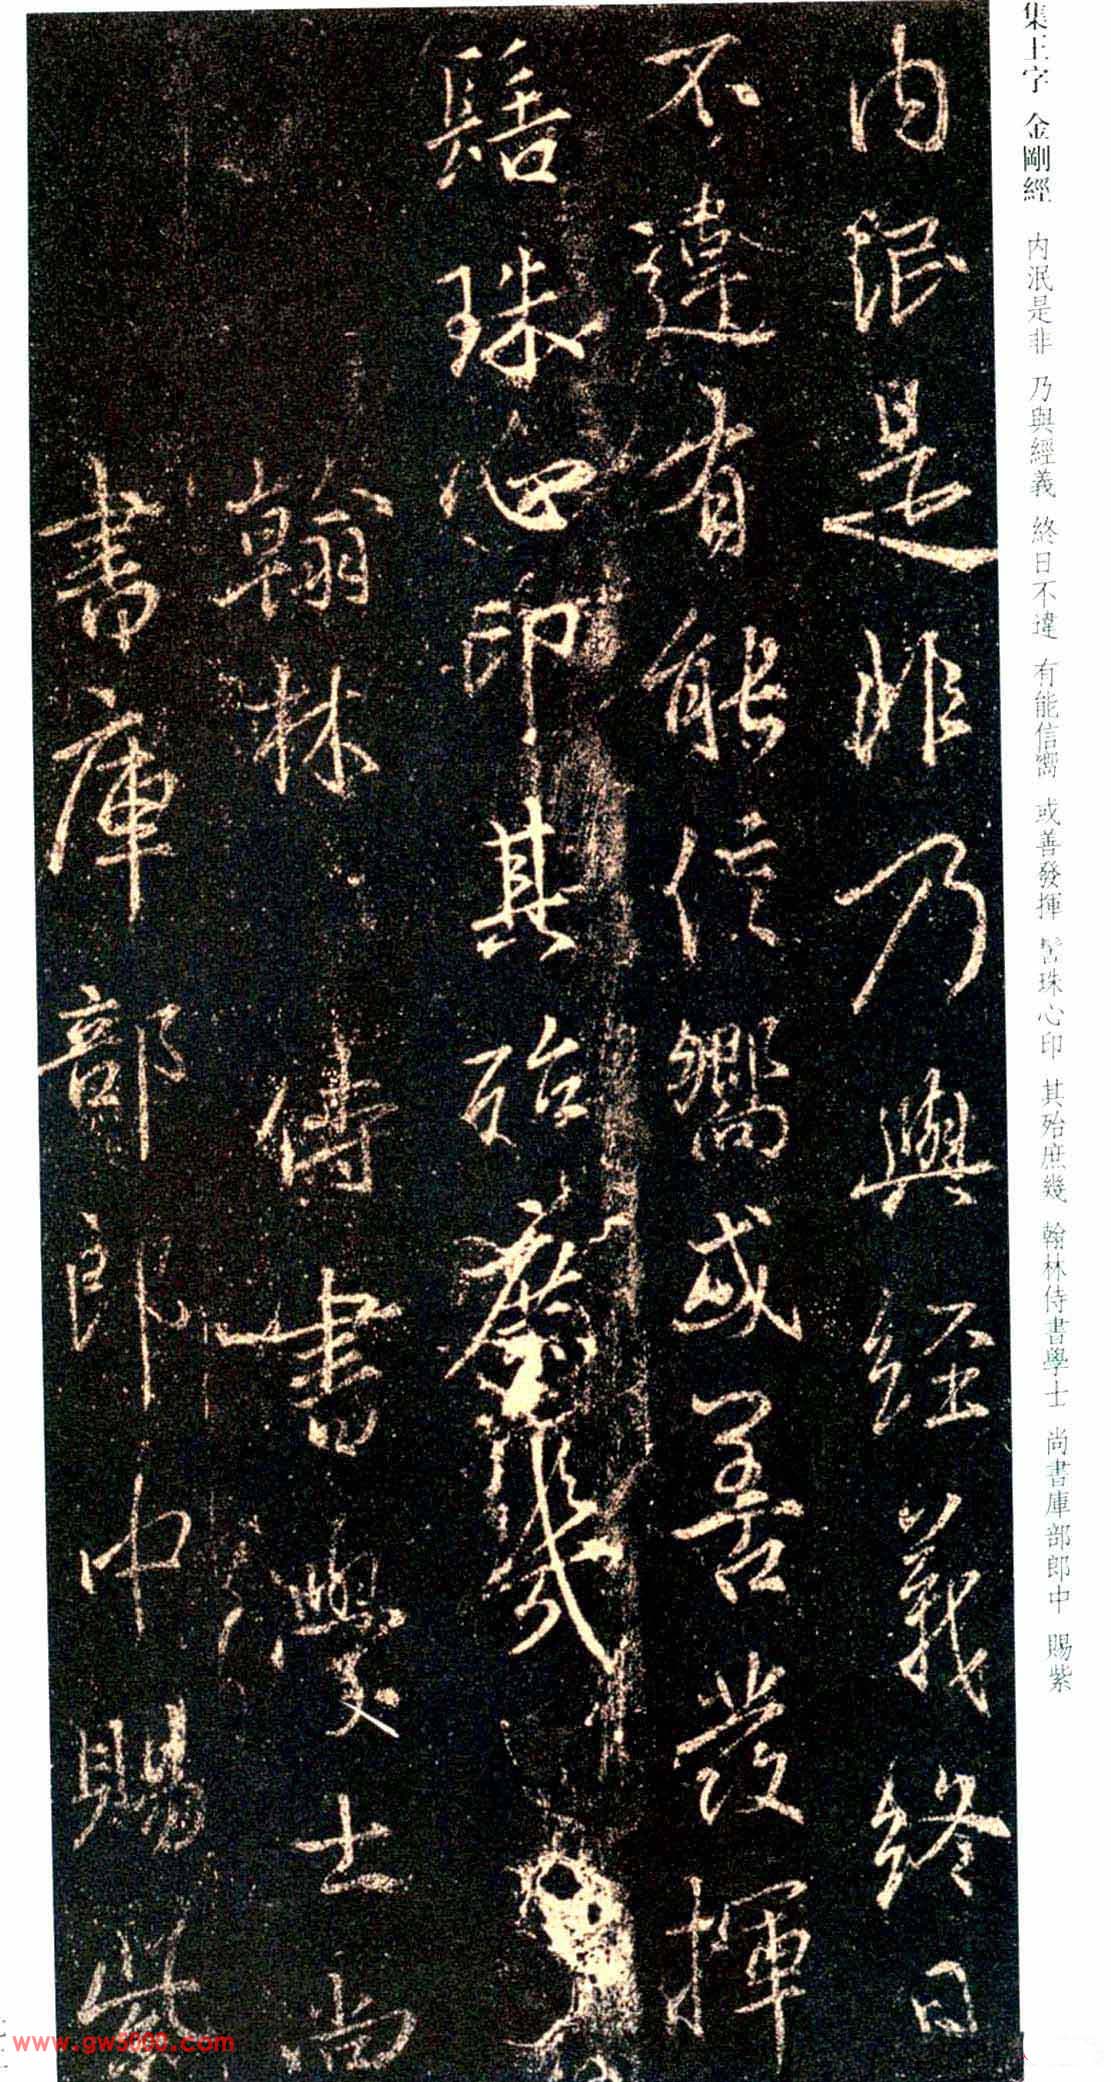 集王字 金剛經 内泯是非 乃與經義 終日不違 有能信嚮 或善發揮 髻珠心印 其殆庶幾 翰林侍書學士 尚書庫部郎中 賜紫
内泯是非乃與經義終日
不違有能信嚮或善發揮
髻珠心印其殆庶幾
翰林侍書學士尚
書庫部郎中賜紫
www.gw5000.com